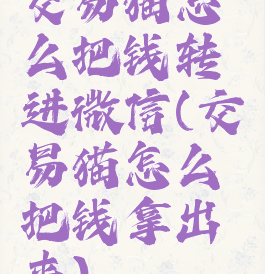 交易猫怎
么把钱转
进微信(交
易猫怎么
把钱拿出
来)